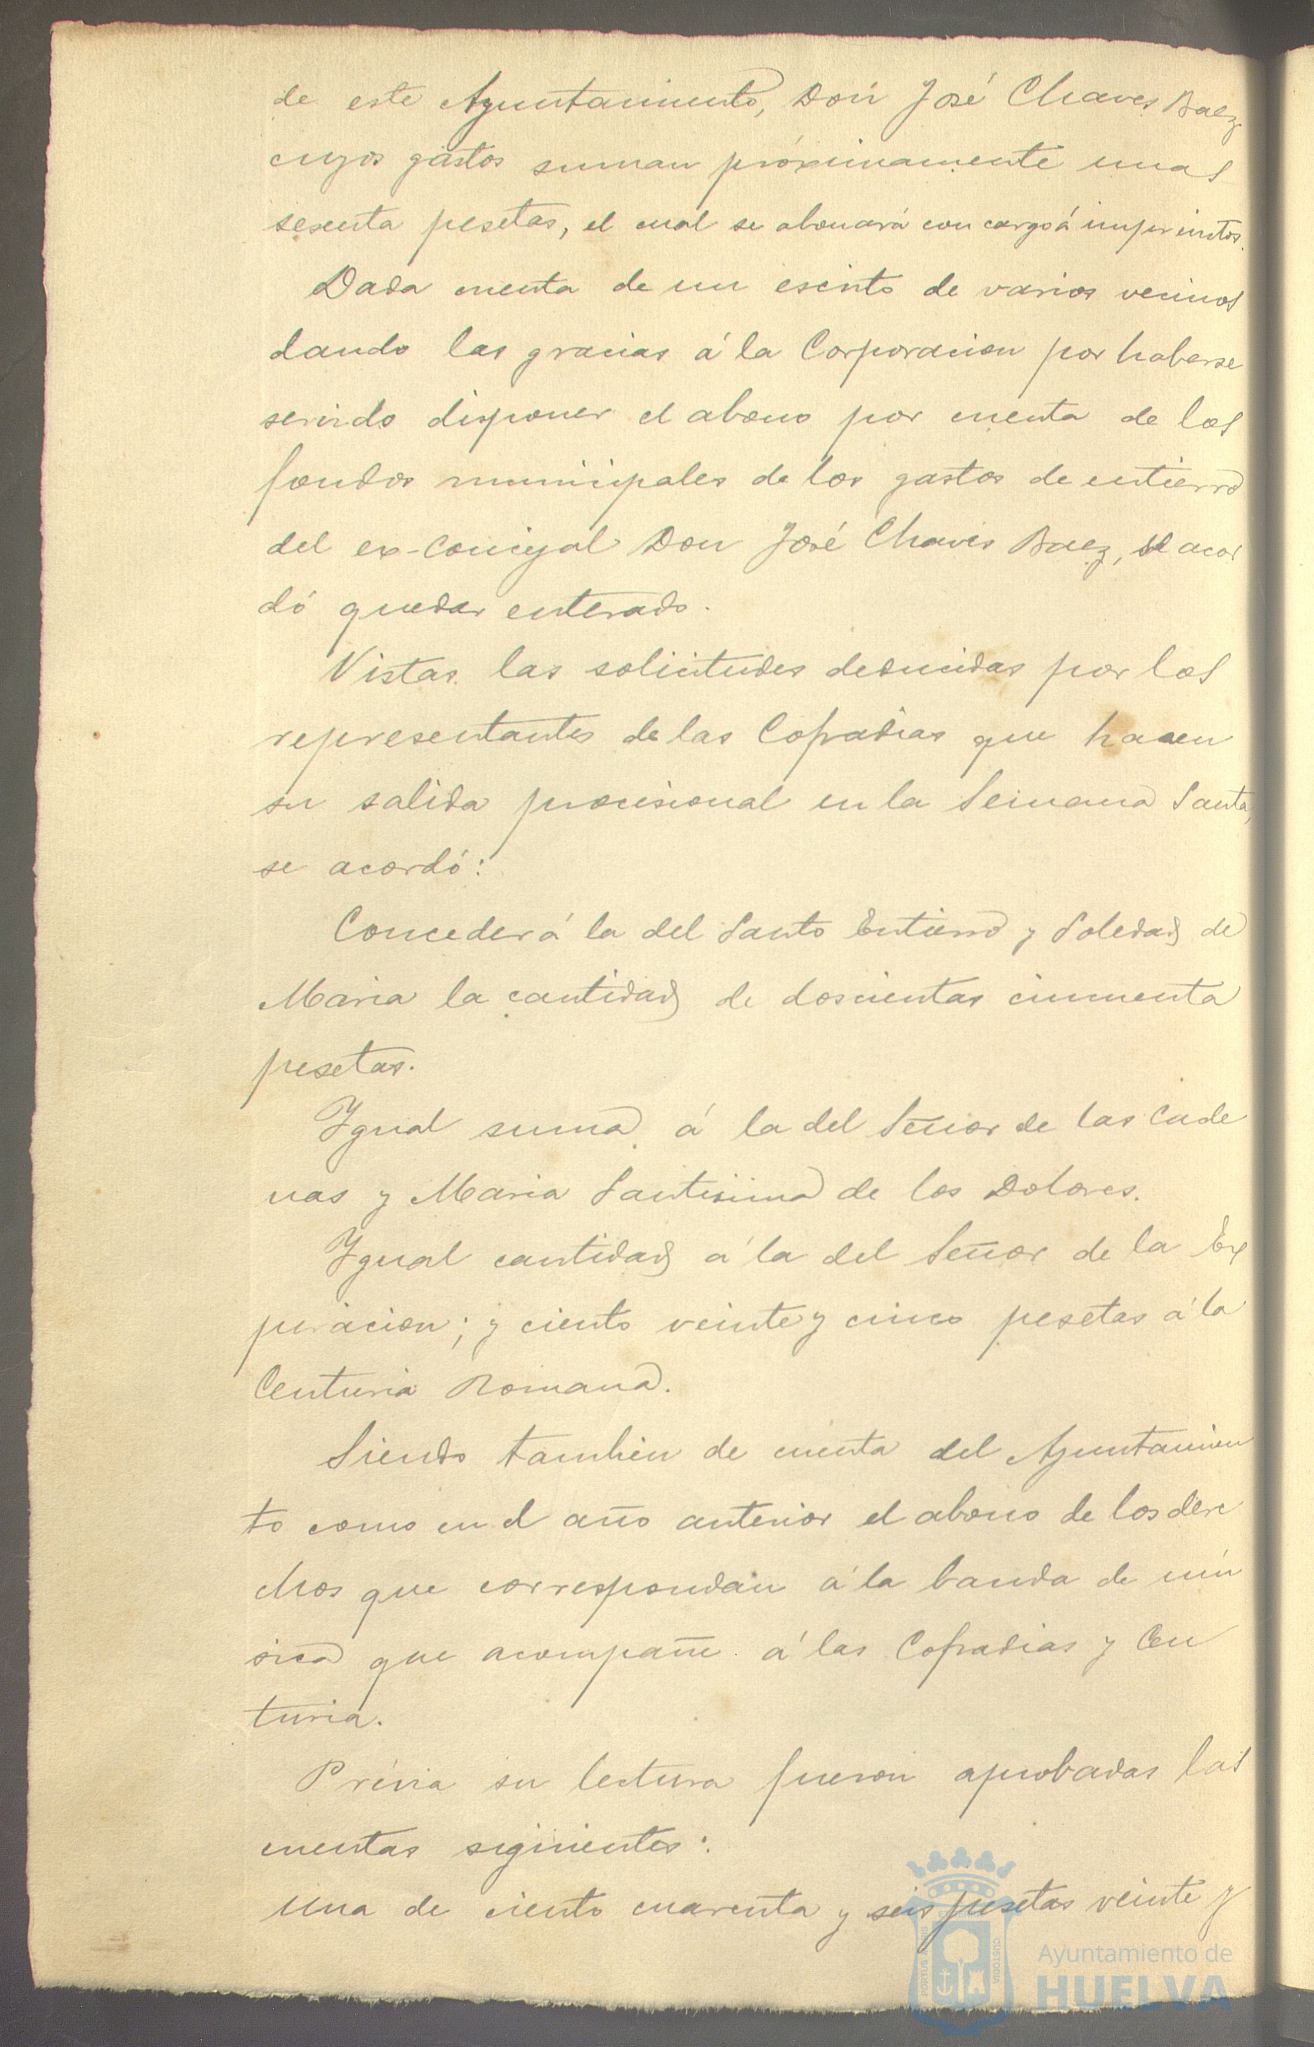 de este Ayuntamiento, Don José Chaves Baez
cuyos gastos suman próximamente unas
sesenta pesetas, el cual se abonará con cargo á imprevistos.
Dada cuenta de un escrito de varios vecinos
dando las gracias á la Corporacion por haberse
servido disponer el abono por cuenta de los
fondos municipales de los gastos de entierro
del ex-concejal Don José Chaves Baez, se acor
dó quedar enterado.
Vistas las solicitudes deducidas por los
representantes de las Cofradias que hacen
su salida procesional en la Semana Santa,
se acordó:
Conceder á la del Santo Entierro y Soledad de
Maria la cantidad de doscientas cincuenta
pesetas.
Ygual suma á la del Señor de las Cade
nas y Maria Santisima de los Dolores.
Ygual cantidad á la del Señor de la Ex
piracion; y ciento veinte y cinco pesetas á la
Centuria Romana.
Siendo tambien de cuenta del Ayuntamien
to como en el año anterior el abono de los dere
chos que correspondan á la banda de mú
sica que acompañe á las Cofradias y Cen
turia.
Prévia su lectura fueron aprobadas las
cuentas siguientes:
Una de ciento cuarenta y seis pesetas veinte y
Ayuntamiento de
HUELVA